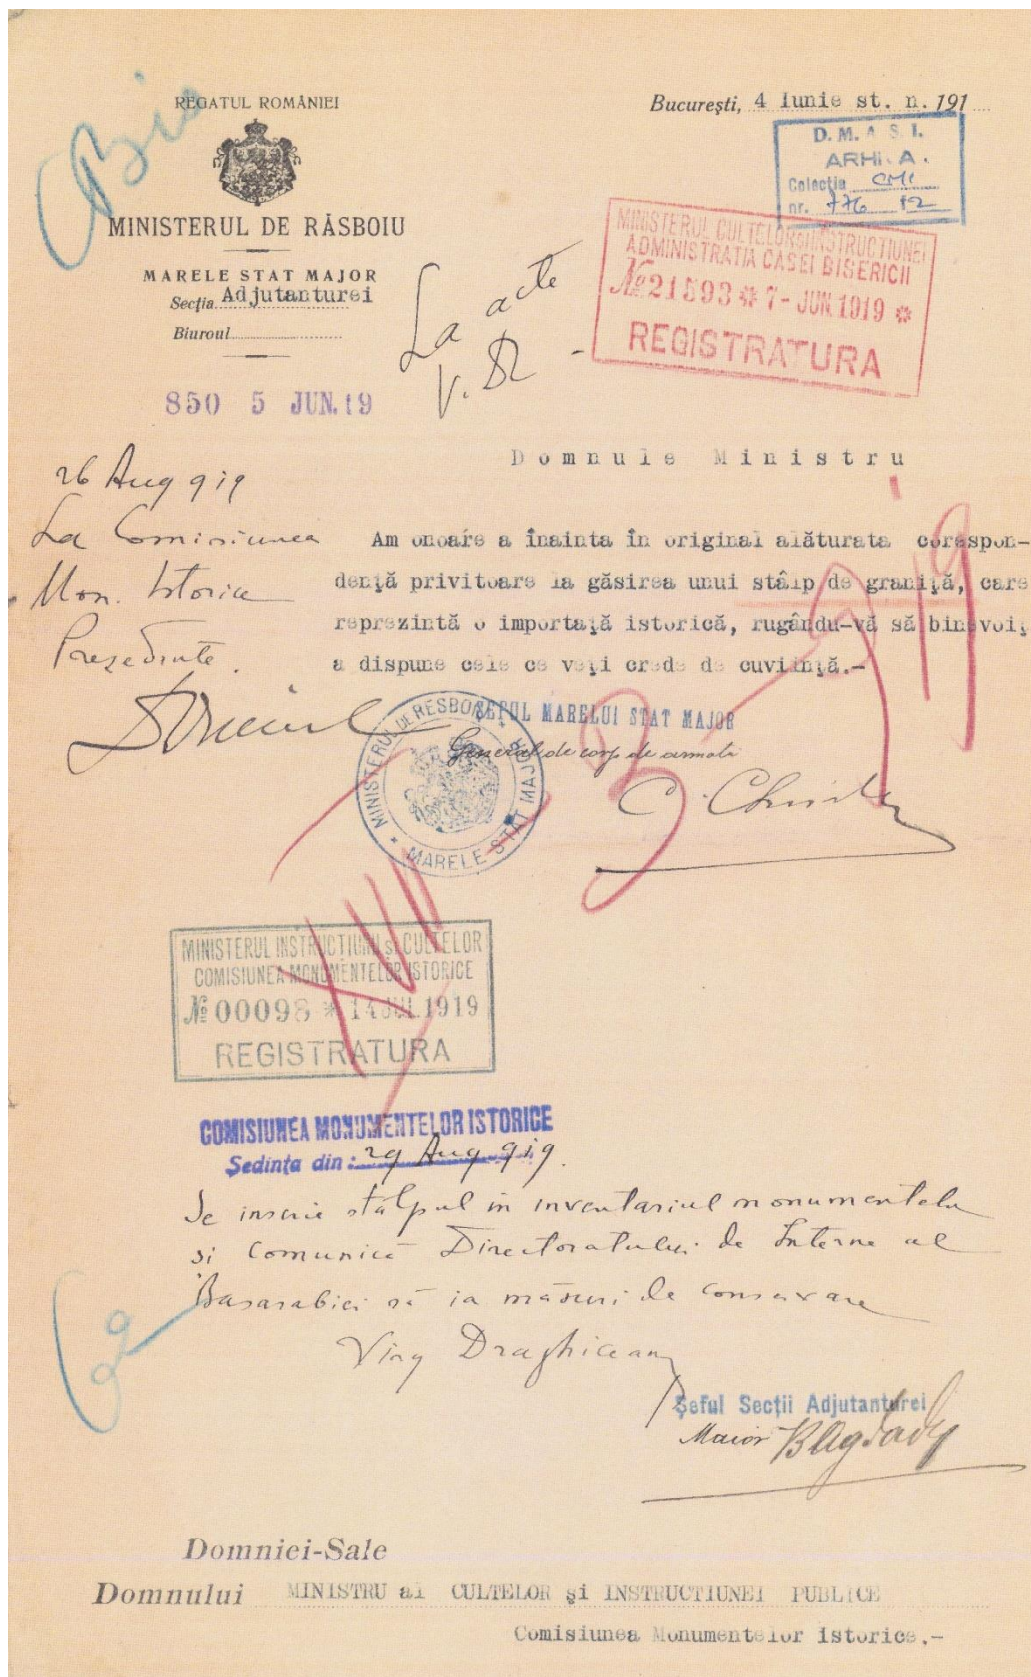 REGATUL ROMÂNIEI
MINISTERUL DE RĂSBOIU
MARELE STAT MAJOR
Secția Adjutanturei
Biuroul
850 5 JUN.19
București, 4 Iunie st. n. 191
D. M. A. S. I.
ARHIVA.
Colectia CMI
nr. 776 12
MINISTERUL CULTELOR ȘI INSTRUCTIUNEI
ADMINISTRATIA CASEI BISERICII
№ 21593 * 7- JUN. 1919 *
REGISTRATURA
La acte
26 Aug 919
La Comisiunea
Mon. Istorice
Președinte.
Domnule Ministru
Am onoare a înainta în original alăturata corespon-
dență privitoare la găsirea unui stâlp de graniță, care
reprezintă o importață istorică, rugându-vă să binevoiț
a dispune cele ce veți crede de cuviință.-
ȘEFUL MARELUI STAT MAJOR
General de corp de armată
MINISTERUL DE RESBOIU * MARELE STAT MAJOR *
MINISTERUL INSTRUCTIUNII si CULTELOR
COMISIUNEA MONUMENTELOR ISTORICE
№ 00098 * 14 JUL. 1919
REGISTRATURA
XVII
COMISIUNEA MONUMENTELOR ISTORICE
Ședința din: 29 Aug 919.
Se inscrie stâlpul in inventariul monumentelor
si comunică Directoratului de Interne al
Basarabiei să ia măsuri de conservare
Virg Draghiceanu
Șeful Secții Adjutanturei
Maior
Domniei-Sale
Domnului MINISTRU al CULTELOR și INSTRUCTIUNEI PUBLICE
Comisiunea Monumentelor istorice.-